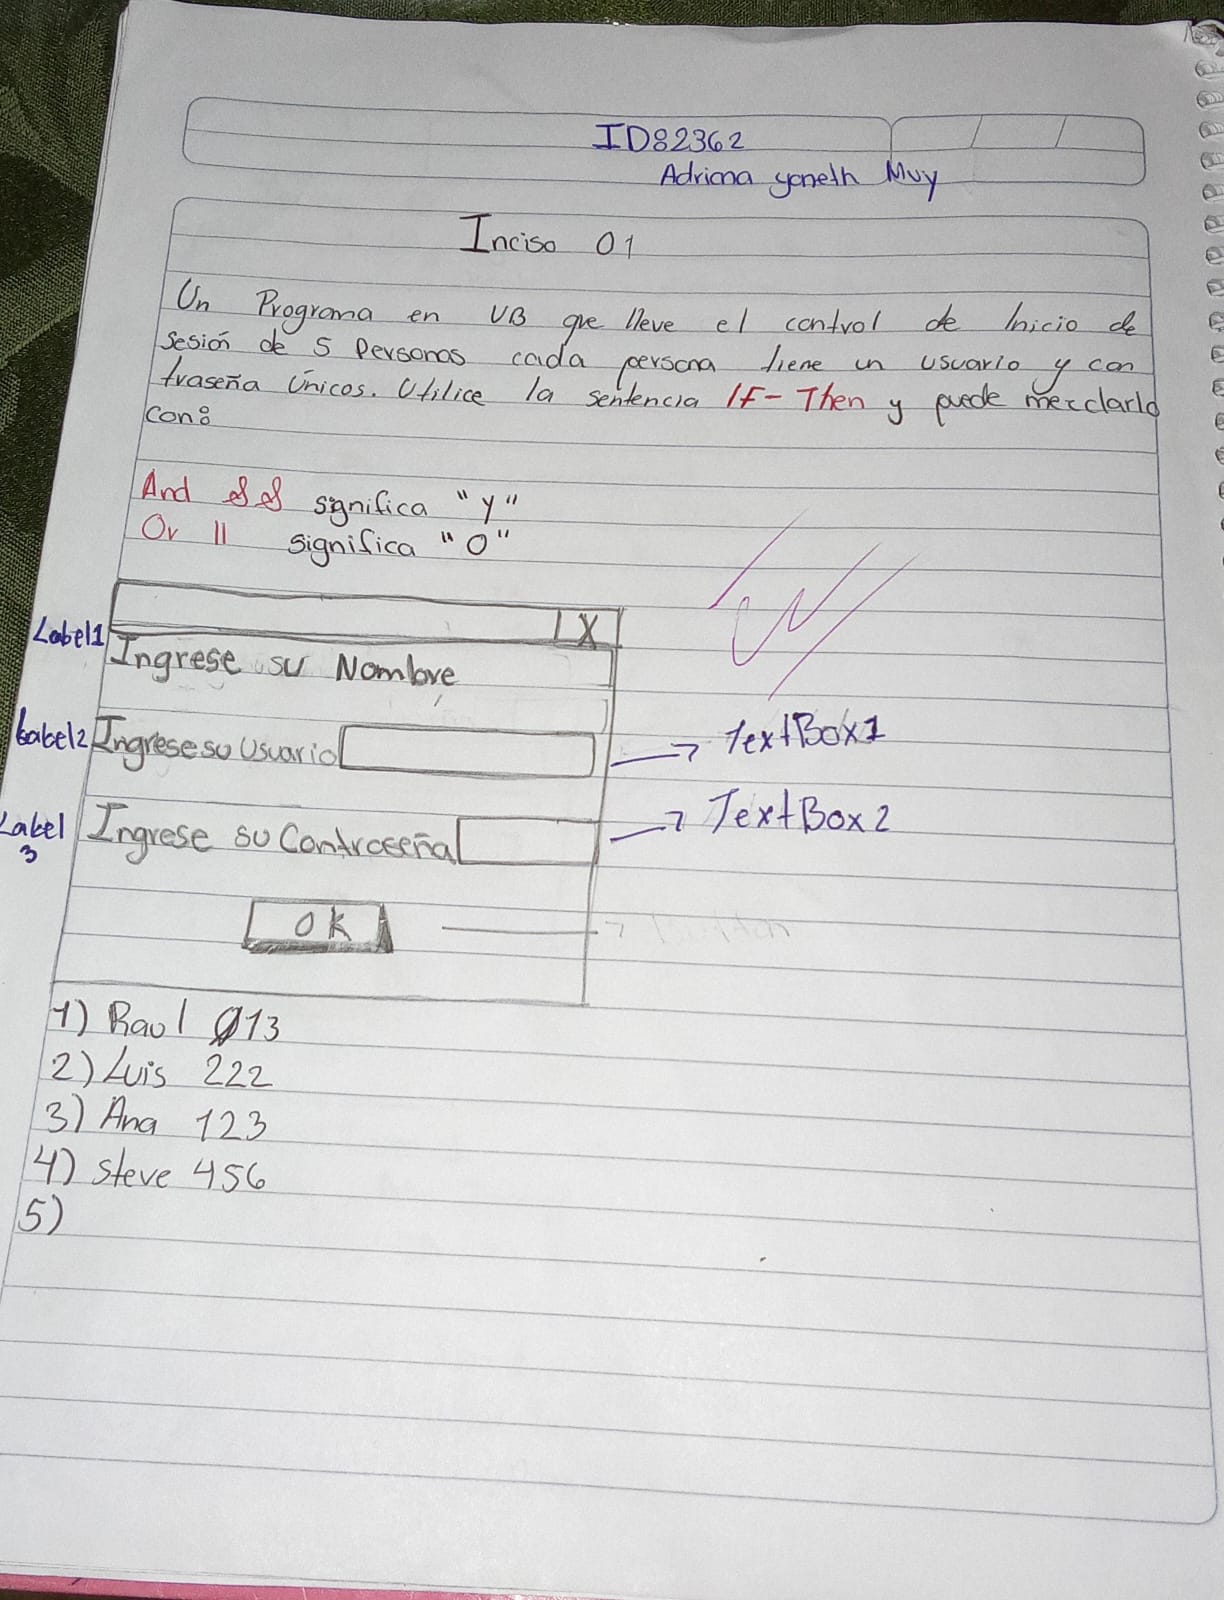 ID82362
Adriana yaneth Muy
Inciso 01
Un Programa en VB que lleve el control de Inicio de
sesión de 5 Personas cada persona tiene un usuario y con
traseña Únicos. Utilice la sentencia IF-Then y puede mezclarlo
con:
And && significa "y"
Or || significa "O"
X
Label1 Ingrese su Nombre
Label2 Ingrese su Usuario → TextBox1
Label 3 Ingrese su Contraseña → TextBox2
OK →
1) Raul 013
2) Luis 222
3) Ana 123
4) Steve 456
5)